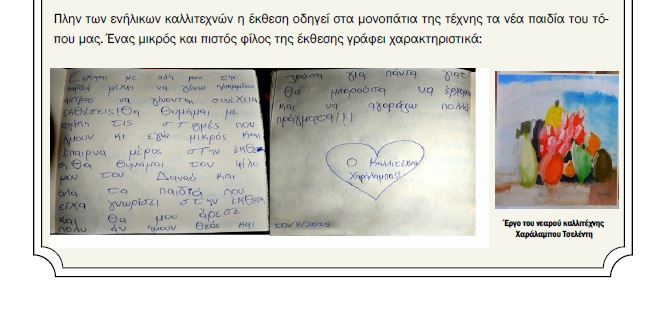 Πλην των ενήλικων καλλιτεχνών η έκθεση οδηγεί στα μονοπάτια της τέχνης τα νέα παιδία του τό-
που μας. Ένας μικρός και πιστός φίλος της έκθεσης γράφει χαρακτηριστικά:
Εύχομαι με όλη μου την
καρδιά μέχρι να γίνω
άντρας να γίνονται συνέχεια
εκθέσεις! Θα θυμάμαι με
τις στιγμές που
ήμουν κι εγώ μικρός και
έπαιρνα μέρος στην έκθε
ση θα θυμάμαι τον φίλο
μου τον Δαναό και
όλα τα παιδιά που
είχα γνωρίσει στην έκθεση
και θα μου άρεσε
πολύ άν ήμουν θεός και
ζούσα για πάντα γιατί
θα μπορούσα να έρχομαι
και να αγοράζω πολλά
πράγματα!!!
Ο Καλλιτέχνης
Χαράλαμπος!
10/8/2023
Έργο του νεαρού καλλιτέχνης
Χαράλαμπου Τσελέντη